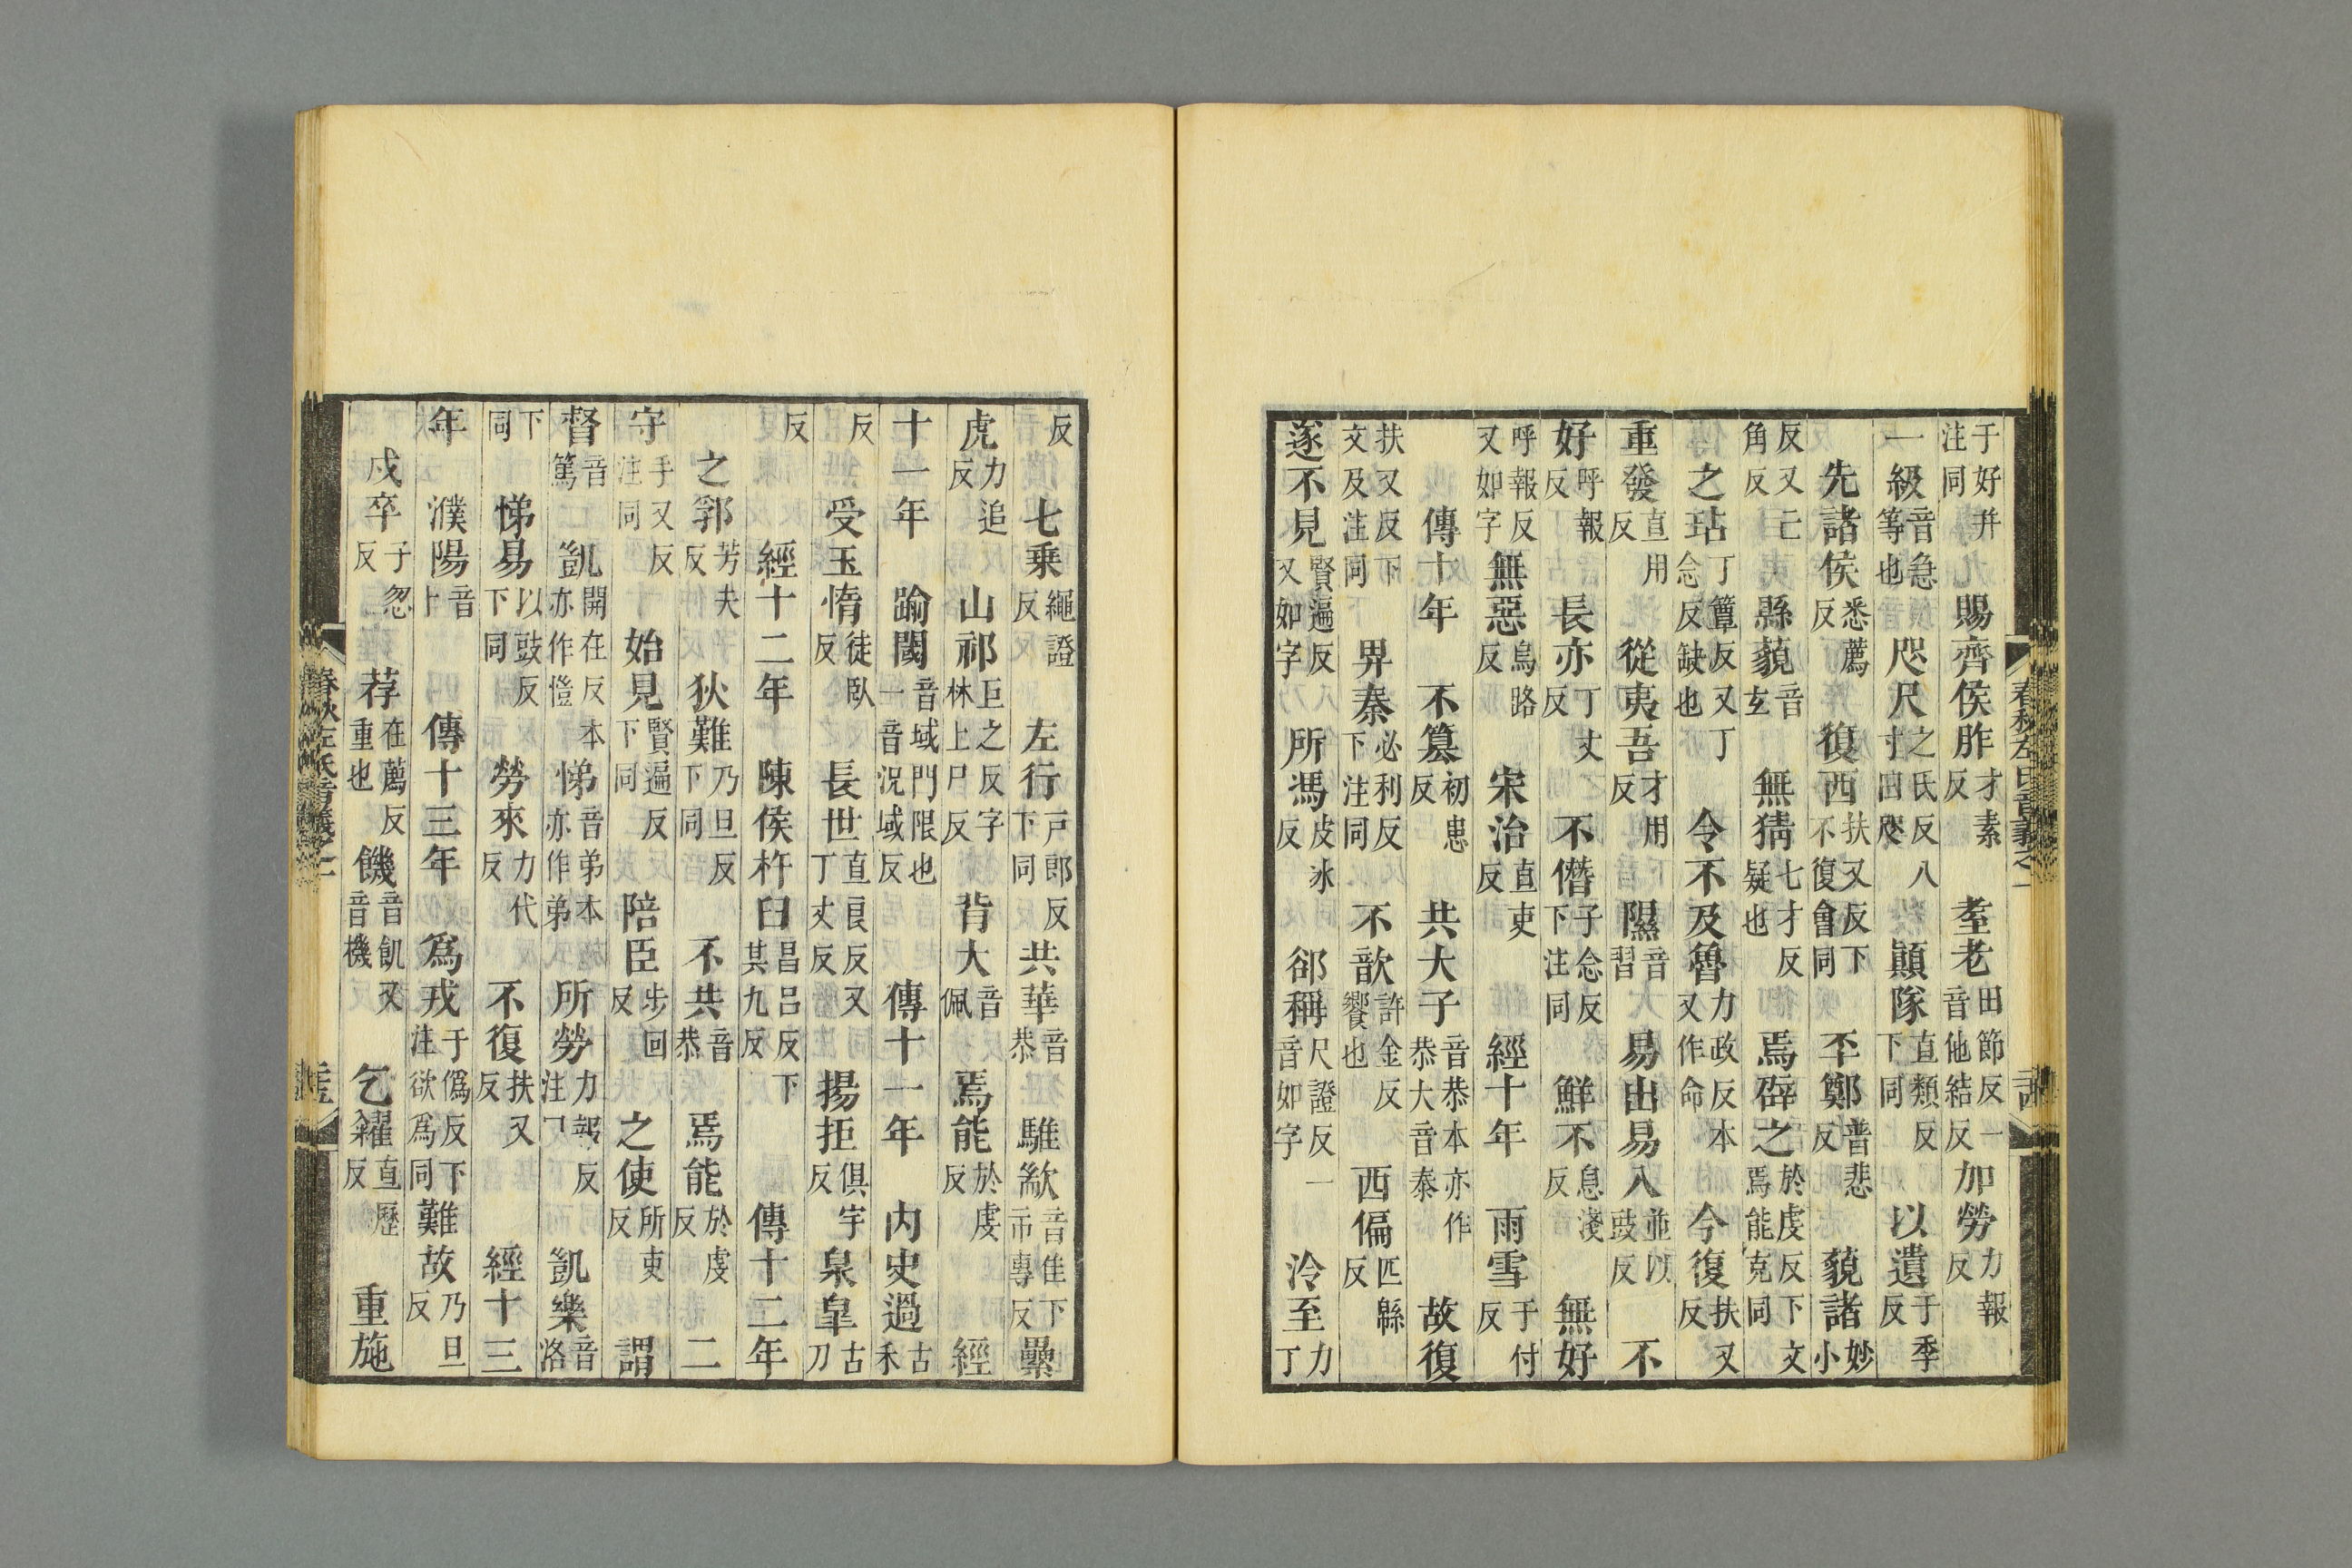 春秋左氏音義之一
于好并注同　賜齊侯胙才素反　耋老田節反一音他結反　加勞力報反
一級音急等也　咫尺之氏反八寸曰咫　顚隊直類反下同　以遺于季反
先諸侯悉薦反　復西扶又反下不復會同　丕鄭普悲反　藐諸妙小
反又亡角反　縣藐音玄　無猜七才反疑也　焉辟之於虔反下文焉能克同
之玷丁簟反又丁念反缺也　令不及魯力政反本又作命　今復扶又反
重發直用反　從夷吾才用反　隰音習　易出易入並以豉反　不
好呼報反　長亦丁丈反　不僭子念反下注同　鮮不息淺反　無好
呼報反又如字　無惡烏路反　宋治直吏反　經十年　雨雪于付反
傳十年　不篡初患反　共大子音恭本亦作恭大音泰　故復
扶又反下文及注同　畀秦必利反下注同　不歆許金反饗也　西偏匹緜反
遂不見賢遍反又如字　所馮皮冰反　郤稱尺證反一音如字　泠至力丁
反　七乘繩證反　左行戸郎反下同　共華音恭　騅歂音隹下市專反　纍
虎力追反　山祁巨之反字林上尸反　背大音佩　焉能於虔反　經
十一年　踰閾音域門限也一音況域反　傳十一年　内史過古禾
反　受玉惰徒臥反　長世直良反又丁丈反　揚拒俱宇反　泉皐古刀
反　經十二年　陳侯杵臼昌呂反下其九反　傳十二年
之郛芳夫反　狄難乃旦反下同　不共音恭　焉能於虔反　二
守手又反注同　始見賢遍反下同　陪臣步回反　之使所吏反　謂
督音篤　凱開在反本亦作愷　悌音弟本亦作弟　所勞力報反注同　凱樂音洛
下同　悌易以豉反下同　勞來力代反　不復扶又反　經十三
年　濮陽音卜　傳十三年　爲戎于僞反下注欲爲同　難故乃旦反
戍卒子忽反　荐在薦反重也　饑音飢又音機　乞糴直歷反　重施
春秋左氏音義之一